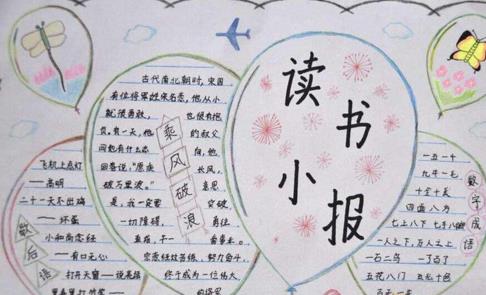 读书
小报
乘风破浪
古代南北朝时,宋国
有位将军姓宗名悫,他从小
就很勇敢, 也很有抱
负。有一天,他 的叔父
问他有什么志 向,他
回答说:“愿乘 长风,
破万里浪。” 意思
是:我一定要 突破
一切障碍, 勇往
直前,干一 番事业。
宗悫经过苦练,努力奋斗,
终于成为一位伟大
歇后语
飞机上点灯
——高明
二十一天不出鸡
——坏蛋
小和尚念经
——有口无心
打开天窗——说亮话
数字成语
一五一十
九牛一毛
十全十美
四面八方
七上八下 七手八脚
一人之下,万人之上
一石二鸟 一了百了
五花八门 五光十色